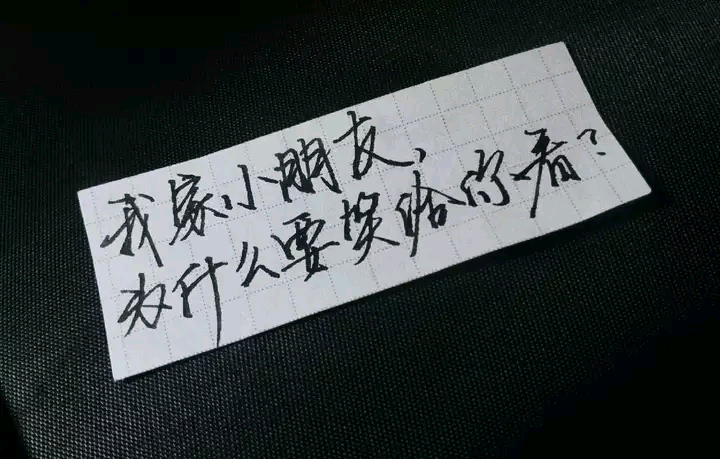 我家小朋友,
为什么要笑给你看?